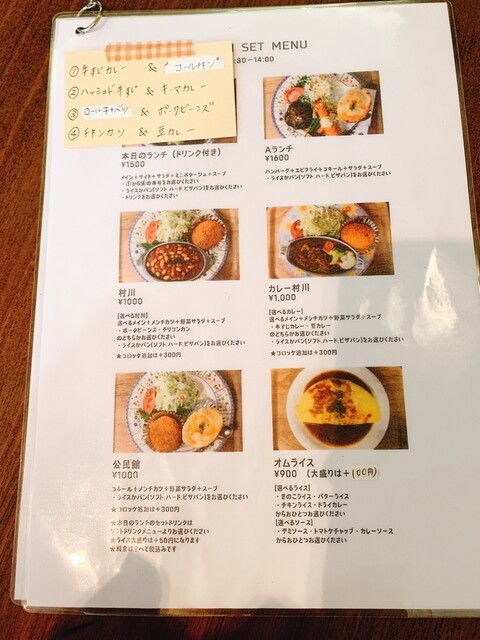 SET MENU
:30-14:00
①牛すじカレー & コールチキン
②ハッシュド牛すじ & キーマカレー
③ロールキャベツ & ポークビーンズ
④チキンカツ & 豆カレー
本日のランチ（ドリンク付き）
¥1500
メイン＋サイド＋サラダ＋ミニポタージュ＋スープ
・①から④の番号をお選びください
・ライスかパン(ソフト、ハード、ピザパン)をお選びください
・ドリンクをお選びください
Aランチ
¥1600
ハンバーグ＋エビフライ＋コキール＋サラダ＋スープ
・ライスかパン(ソフト、ハード、ピザパン)をお選びください
村川
¥1000
[選べる村川]
選べるメイン＋メンチカツ＋野菜サラダ＋スープ
・ポークビーンズ・チリコンカン
のどちらかお選びください
・ライスかパン(ソフト、ハード、ピザパン)をお選びください
★コロッケ追加は＋300円
カレー村川
¥1,000
[選べるカレー]
選べるメイン＋メンチカツ＋野菜サラダ＋スープ
・牛すじカレー・豆カレー
のどちらかお選びください
・ライスかパン(ソフト、ハード、ピザパン)をお選びください
★コロッケ追加は＋300円
公民館
¥1000
コキール＋メンチカツ＋野菜サラダ＋スープ
・ライスかパン(ソフト、ハード、ピザパン)をお選びください
★コロッケ追加は＋300円
★本日のランチのセットドリンクは
ソフトドリンクメニューよりお選びください
★ライス大盛りは＋50円になります
★料金はすべて税込みです
オムライス
¥900 （大盛りは＋100円）
[選べるライス]
・きのこライス・バターライス
・チキンライス・ドライカレー
からおひとつお選びください
[選べるソース]
・デミソース・トマトケチャップ・カレーソース
からおひとつお選びください